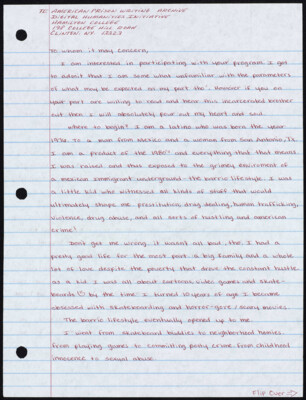 TO: AMERICAN PRISON WRITING ARCHIVE
DIGITAL HUMANITIES INITIATIVE
HAMILTON COLLEGE
198 COLLEGE HILL ROAD
CLINTON, NY 13323
To whom it may concern,
I am interested in participating with your program. I got
to admit that I am some what unfamiliar with the parameters
of what may be expected on my part tho'. However if you on
your part are willing to read and hear this incarcerated brother
out then I will absolutely pour out my heart and soul.
where to begin? I am a latino who was born the year
1976 to a man from Mexico and a woman from San Antonio, TX.
I am a product of the 1980's and everything that that meant.
I was raised and thus exposed to the grimey enviroment of
a mexican immigrant underground - the barrio lifestyle. I was
a little kid who witnessed all kinds of stuff that would
ultimately shape me: prostitution, drug dealing, human trafficking,
violence, drug abuse, and all sorts of hustling and american
crime!
Don't get me wrong, it wasnt all bad, tho. I had a
pretty good life for the most part. A big family and a whole
lot of love despite the poverty that drove the constant hustle.
as a kid I was all about cartoons, video games and skate-
boards by the time I turned 10 years of age I became
obsessed with skateboarding and horror-gore/scary movies.
The barrio lifestyle eventually opened up to me.
I went from skateboard buddies to neighborhood homies.
from playing games to committing petty crime. from childhood
innocence to sexual abuse.
Flip Over